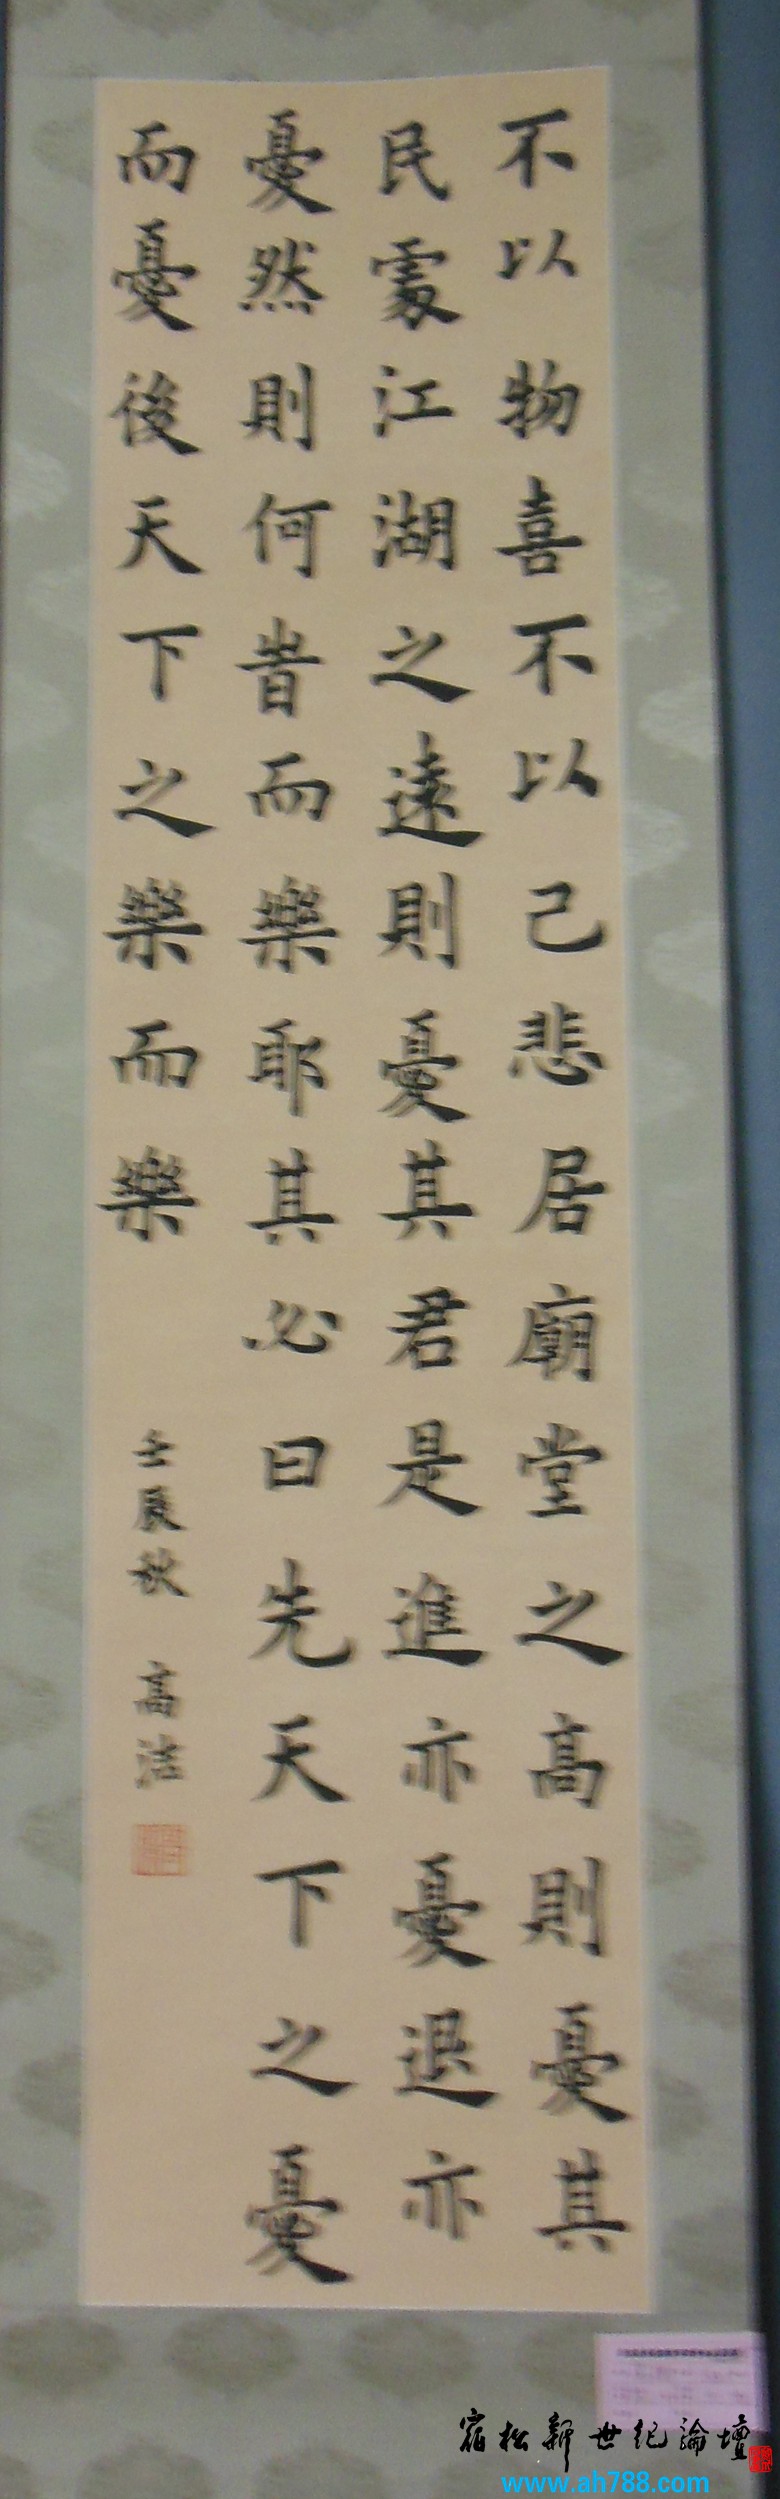 不以物喜不以己悲居廟堂之高則憂其
民處江湖之遠則憂其君是進亦憂退亦
憂然則何旹而樂耶其必曰先天下之憂
而憂後天下之樂而樂
壬辰秋 高洁
宿松新世纪論壇
www.ah788.com